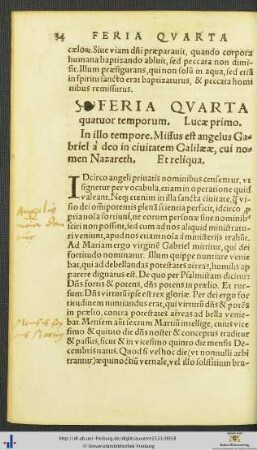 34 FERIA QVARTA
cælow. Siue viam dñi præparauit, quando corpora
humana baptizando abluit, sed peccara non dimi-
sit. Illum præsigurans, qui non solũ in aqua, sed etiã
in spiritu sancto erat baptizaturus, & peccara homi
nibus remissurus.
FERIA QVARTA
quatuor temporum. Lucæ primo.
In illo tempore. Missus est angelus Ga-
briel à deo in ciuitatem Galilææ, cui no-
men Nazareth. Et reliqua.
IDcirco angeli priuatis nominibus censentur, vt
signetur per vocabula, etiam in operatione quid
valeant. Neq; etenim in illa sancta ciuitate, q̃ visio
sio dei omnipotentis plenã scientia perficit, idcirco
pria noĩa sortiuni, ne eorum personæ sine nominib9
sciri non possint, sed cum ad nos aliquid ministratu-
ri veniunt, apud nos etiam noĩa à ministeriis trahũt.
Ad Mariam ergo virginẽ Gabriel mittitur, qui dei
fortitudo nominatur. Illum quippe nuntiare venie
bat, qui ad debellandas potestates aëreas, humilis ap
parere dignatus est. De quo per Psalmistam dicitur:
Dñs fortis & potens, dñs potens in prælio. Et rur-
sum: Dñs virtutũ ipse est rex gloriæ. Per dei ergo for
titudinem nuntiandus erat, qui virtutũ dñs & potẽs
in prælio, contra potestates aëreas ad bella venie-
bat. Mensem aũt sextum Martiũ intellige, cuius vice
simo & quinto die dñs noster & conceptus traditur
& passus, sicut & in vicesimo quinto die mensis De-
cembris natus. Quod si vel hoc die (vt nonnulli arbi
trantur) æquinoctiũ vernale, vel illo solstitium bru-
http://dl.ub.uni-freiburg.de/diglit/auxerre1531/0058
© Universitätsbibliothek Freiburg